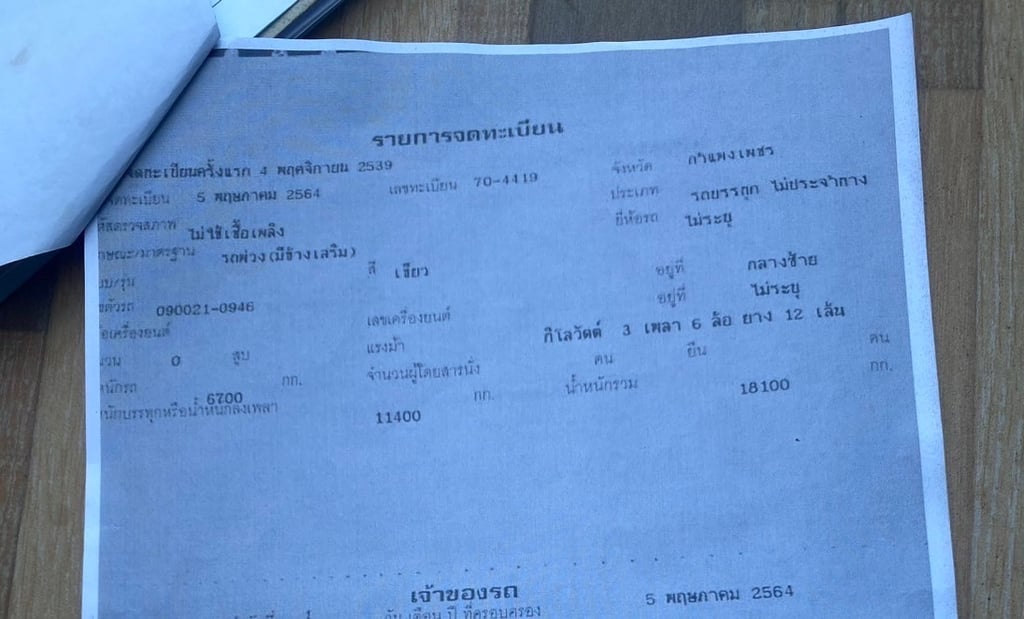 รายการจดทะเบียน
จดทะเบียนครั้งแรก 4 พฤศจิกายน 2539 จังหวัด กำแพงเพชร
จดทะเบียน 5 พฤษภาคม 2564 เลขทะเบียน 70-4419 ประเภท รถบรรทุก ไม่ประจำทาง
สตรวจสภาพ ไม่ใช้เชื้อเพลิง ยี่ห้อรถ ไม่ระบุ
ษณะ/มาตรฐาน รถพ่วง(มีข้างเสริม) สี เขียว
บบ/รุ่น อยู่ที่ กลางซ้าย
ตัวรถ 090021-0946 เลขเครื่องยนต์ อยู่ที่ ไม่ระบุ
เครื่องยนต์ แรงม้า กิโลวัตต์ 3 เพลา 6 ล้อ ยาง 12 เส้น
วน 0 สูบ จำนวนผู้โดยสารนั่ง คน ยืน คน
หนักรถ 6700 กก. กก. น้ำหนักรวม 18100 กก.
หนักบรรทุกหรือน้ำหนักลงเพลา 11400
เจ้าของรถ
1 วัน เดือน ปี ที่ครอบครอง 5 พฤษภาคม 2564